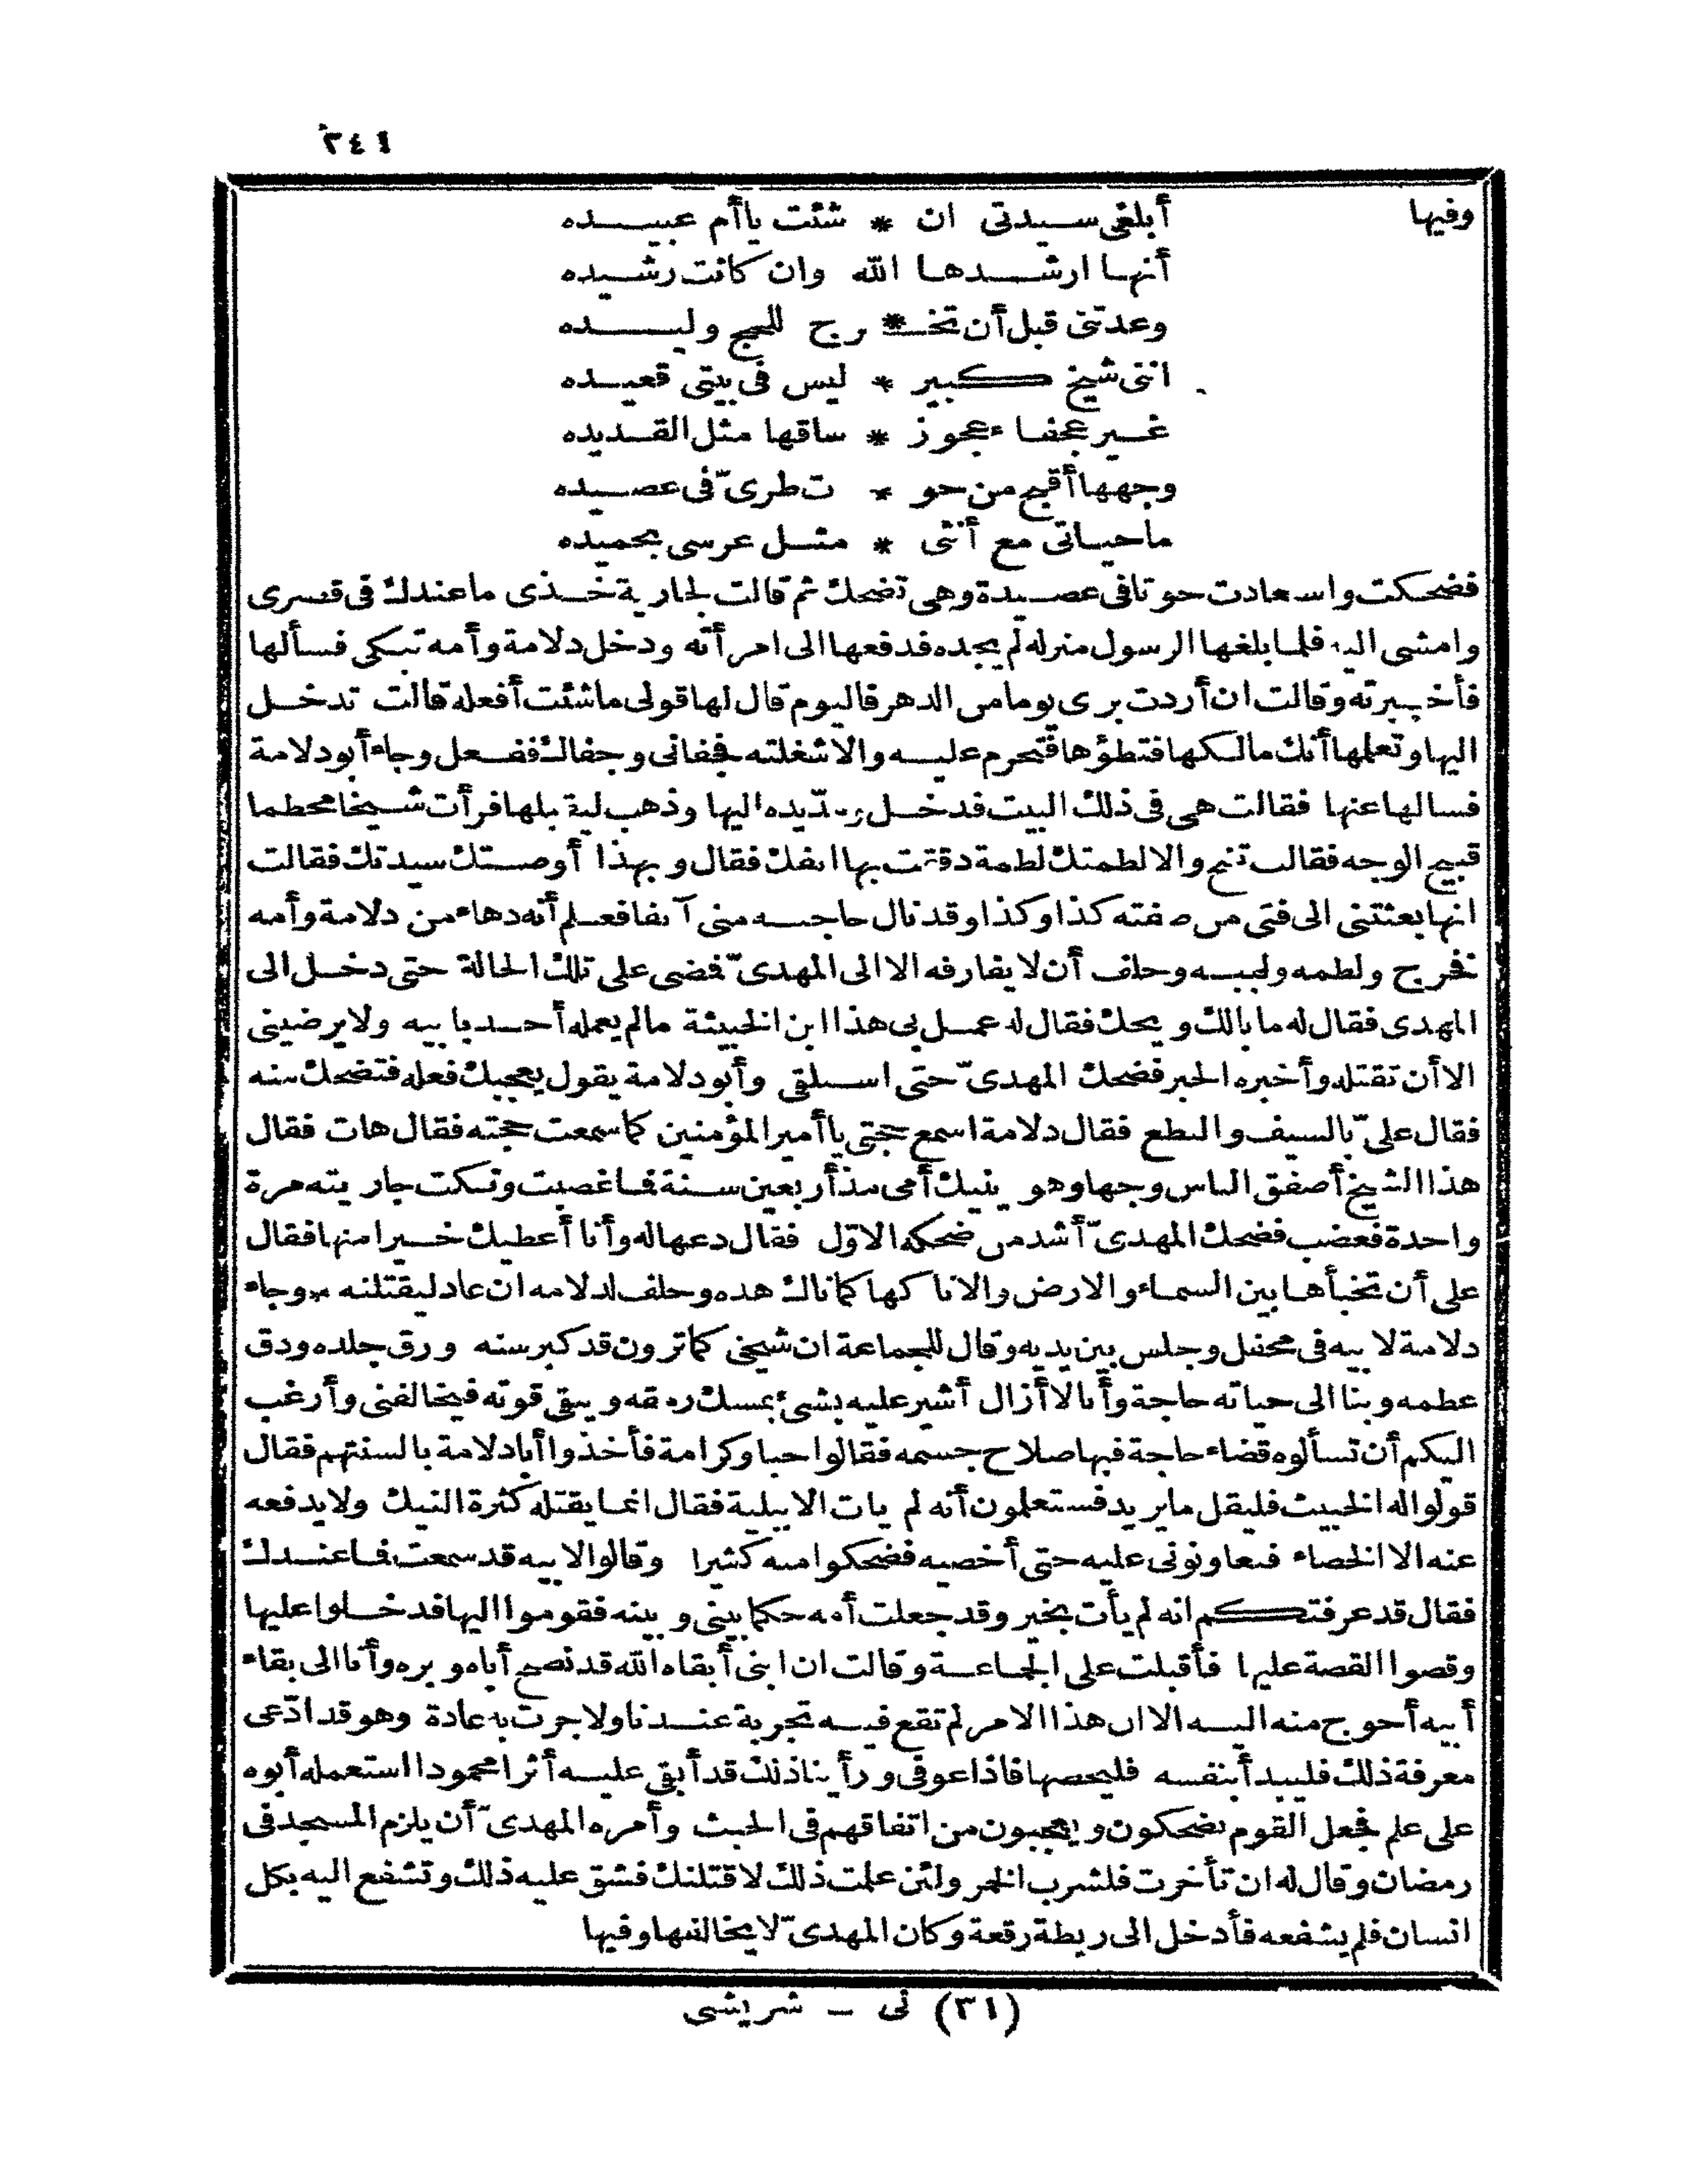 ٢٤١
وفيها أبلغى سيدتى ان * شئت ياأم عبيده
أنها ارشدها الله وان كانت رشيده
وعدتنى قبل أن تخـ * رج للحج وليده
اننى شيخ كبير * ليس فى بيتى قعيده
غير عجفاء عجوز * ساقها مثل القديده
وجهها أقبح من حو * ت طرىّ فى عصيده
ماحياتى مع أنثى * مثل عرسى بحميده
فضحكت واستعادت حوتا فى عصيدة وهى تضحك ثم قالت لجارية خذى ماعندك فى قصرى
وامشى اليه فلما بلغها الرسول منزله لم يجده فدفعها الى امرأته ودخل دلامة وأمه تبكى فسألها
فأخبرته وقالت ان أردت برى يوما من الدهر فاليوم قال لها قولى ماشئت أفعله قالت تدخل
اليها وتعلمها أنك مالكها فتطؤها فتحرم عليه والا شغلته فجفانى وجفاك ففعل وجاء أبودلامة
فسالها عنها فقالت هى فى ذلك البيت فدخل ومدّ يده اليها وذهب ليقبلها فرأت شيخا محطما
قبيح الوجه فقالت تنح والا لطمتك لطمة دققت بها انفك فقال وبهذا أوصتك سيدتك فقالت
انها بعثتنى الى فتى من صفته كذا وكذا وقد نال حاجته منى آنفا فعلم أنه دهاء من دلامة وأمه
فخرج ولطمه ولببه وحلف أن لا يفارقه الا الى المهدىّ فمضى على تلك الحالة حتى دخل الى
المهدى فقال له ما بالك ويحك فقال له عمل بى هذا ابن الخبيثة مالم يعمله أحد بابيه ولا يرضينى
الا أن تقتله وأخبره الخبر فضحك المهدىّ حتى استلقى وأبودلامة يقول يعجبك فعله فتضحك منه
فقال علىّ بالسيف والنطع فقال دلامة اسمع حجتى ياأمير المؤمنين كما سمعت حجته فقال هات فقال
هذا الشيخ أصفق الناس وجها وهو ينيك أمى منذ أربعين سنة فما غضبت ونكت جاريته مرة
واحدة فغضب فضحك المهدىّ أشد من ضحكه الاوّل فقال دعها له وأنا أعطيك خيرا منها فقال
على أن تخبأها بين السماء والارض والا ناكها كما ناك هذه وحلف لدلامه ان عاد ليقتلنه * وجاء
دلامة لابيه فى محفل وجلس بين يديه وقال للجماعة ان شيخى كماترون قد كبر سنه ورق جلده ودق
عظمه وبنا الى حياته حاجة وأنا لا أزال أشير عليه بشئ يمسك رمقه ويبقى قوته فيخالفنى وأرغب
اليكم أن تسألوه قضاء حاجة فيها صلاح جسمه فقالوا حبا وكرامة فأخذوا أبادلامة بالسنتهم فقال
قولوا له الخبيث فليقل مايريد فستعلمون أنه لم يات الا ببلية فقال انما يقتله كثرة النيك ولايدفعه
عنه الا الخصاء فتعاونونى عليه حتى أخصيه فضحكوا منه كثيرا وقالوا لابيه قد سمعت فما عندك
فقال قد عرفتكم انه لم يأت بخير وقد جعلت أمه حكما بينى وبينه فقوموا اليها فدخلوا عليها
وقصوا القصة عليها فأقبلت على الجماعة وقالت ان ابنى أبقاه الله قد نصح أباه وبره وأنا الى بقاء
أبيه أحوج منه اليه الا ان هذا الامر لم تقع فيه تجربة عندنا ولا جرت به عادة وهو قد ادّعى
معرفة ذلك فليبدأ بنفسه فليخصها فاذا عوفى ورأينا ذلك قد أبقى عليه أثرا محمودا استعمله أبوه
على علم فجعل القوم يضحكون ويعجبون من اتفاقهم فى الخبث وأمره المهدىّ أن يلزم المسجد فى
رمضان وقال له ان تأخرت فلشرب الخمر ولئن علمت ذلك لاقتلنك فشق عليه ذلك وتشفع اليه بكل
انسان فلم يشفعه فأدخل الى ريطة رقعة وكان المهدىّ لايخالفها وفيها
(٣١) نى - شريشى